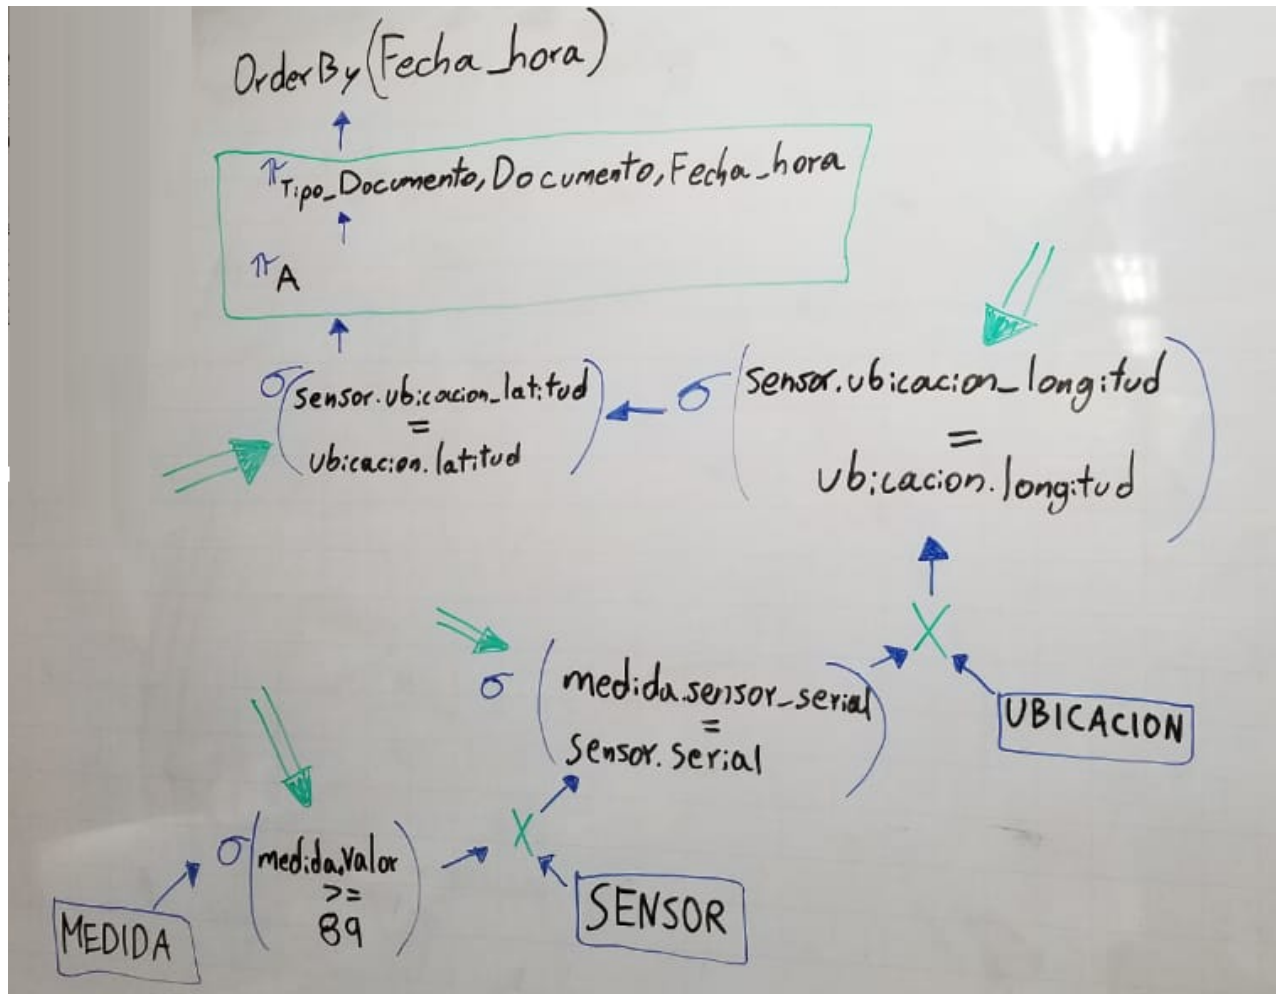 OrderBy(Fecha_hora)
π Tipo_Documento, Documento, Fecha_hora
π A
σ (sensor.ubicacion_latitud
=
ubicacion.latitud)
σ (sensor.ubicacion_longitud
=
ubicacion.longitud)
X
σ (medida.sensor_serial
=
sensor.serial)
UBICACION
X
σ (medida.valor
>=
89)
MEDIDA
SENSOR